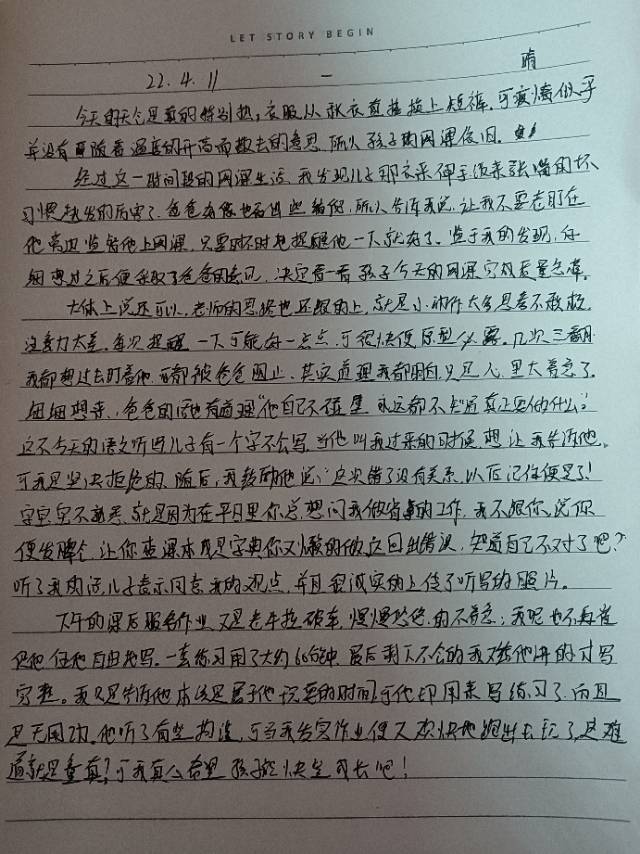 LET STORY BEGIN
22.4.11 一 晴
今天的天气是真的特别热,衣服从秋衣直接换上短裤。可疫情似乎
并没有随着温度的升高而散去的意思,所以孩子的网课依旧。
经过这一时间段的网课生活,我发现儿子那衣来伸手饭来张嘴的坏
习惯越发的厉害了,爸爸好像也看出些端倪,所以告诉我说,让我不要老盯在
他旁边监督他上网课,只要时不时地提醒他一下就好了。鉴于我的发现,仔
细想过之后便采取了爸爸的意见,决定看一看孩子今天的网课究竟质量怎样。
大体上说还可以,老师的思路也还跟的上,就是小动作太多思考不敢放,
注意力太差。每次提醒一下可能好一点点,可很快便原型必露。几次三翻
我都想过去盯着他,可都被爸爸阻止,其实道理我都明白,只是心里太着急了。
细细想来,爸爸的话也有道理"他自己不碰壁,永远都不知道真正要做什么?
这不今天的语文听写儿子有一个字不会写,当他叫我过来的时候,想让我告诉他,
可我是坚决拒绝的,随后,我鼓励他说:这次错了没有关系,以后记住便是了!
字写不熟悉,就是因为在平日里你总想问我做省事的工作,我不跟你说你
便发脾气,让你查课本或是字典你又懒的做,这回出错误,知道自己不对了吧?
听了我的话儿子表示同意我的观点,并且很诚实的上传了听写的照片。
下午的课后服务作业,又是老牛拉破车,慢慢悠悠的不着急,我呢也不再催
促他,任他自由地写。一套练习用了大约60分钟,最后剩下不会的我又给他讲的才写
完整。我只是告诉他本该是属于他玩耍的时间,于他却用来写练习了,而且
是无用功。他听了有些沮丧,可当我给完作业便又欢快地跑出去玩了,这难
道就是童真?可我真心希望孩子能快点成长吧!